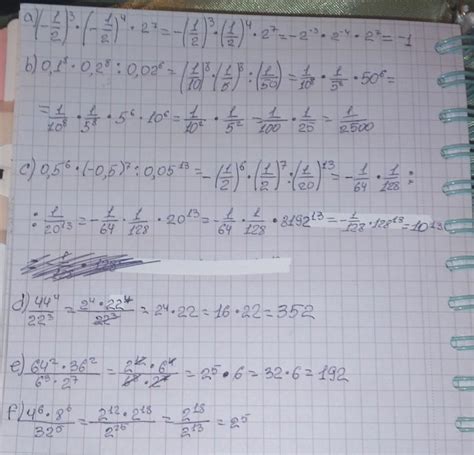 a) (-1/2)³ · (-1/2)⁴ · 2⁷ = -(1/2)³ · (1/2)⁴ · 2⁷ = -2⁻³ · 2⁻⁴ · 2⁷ = -1
b) 0,1⁸ · 0,2⁸ : 0,02⁶ = (1/10)⁸ (1/5)⁸ : (1/50) = 1/10⁸ · 1/5⁸ · 50⁶ =
= 1/10⁸ · 1/5⁸ · 5⁶ · 10⁶ = 1/10² · 1/5² = 1/100 · 1/25 = 1/2500
c) 0,5⁶ · (-0,5)⁷ : 0,05¹³ = -(1/2)⁶ · (1/2)⁷ : (1/20)¹³ = -1/64 · 1/128 :
: 1/20¹³ = -1/64 · 1/128 · 20¹³ = -1/64 · 1/128 · 8192¹³ = -1/128 · 128¹³ = 10¹³
d) 44⁴/22³ = 2⁴ · 22⁴/22³ = 2⁴ · 22 = 16 · 22 = 352
e) 64² · 36²/6³ · 2⁷ = 2¹² · 6⁴/6³ · 2⁷ = 2⁵ · 6 = 32 · 6 = 192
f) 4⁶ · 8⁶/32⁵ = 2¹² · 2¹⁸/2²⁵ = 2¹⁸/2¹³ = 2⁵